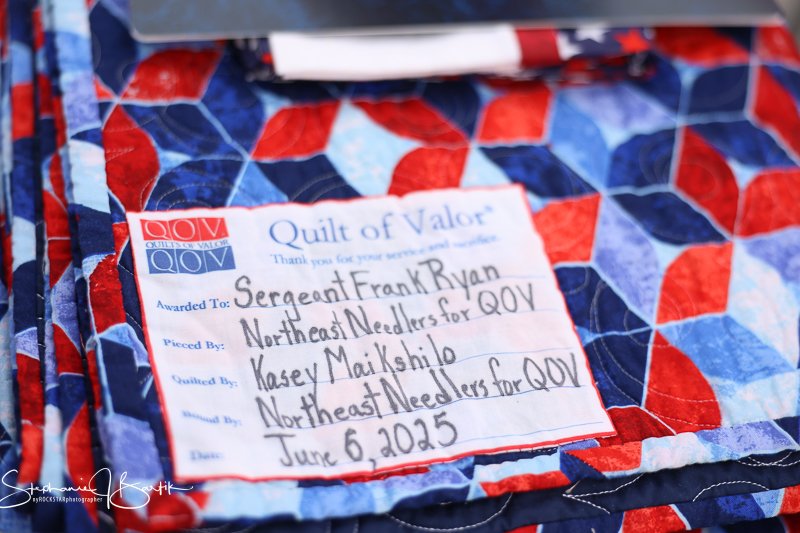 QOV
QUILTS OF VALOR
QOV
Quilt of Valor®
Thank you for your service and sacrifice.
Awarded To: Sergeant Frank Ryan
Pieced By: Northeast Needlers for QOV
Quilted By: Kasey Mai Kshilo
Bound By: Northeast Needlers for QOV
Date: June 6, 2025
Stephanie J Bartik
myROCKSTARphotographer